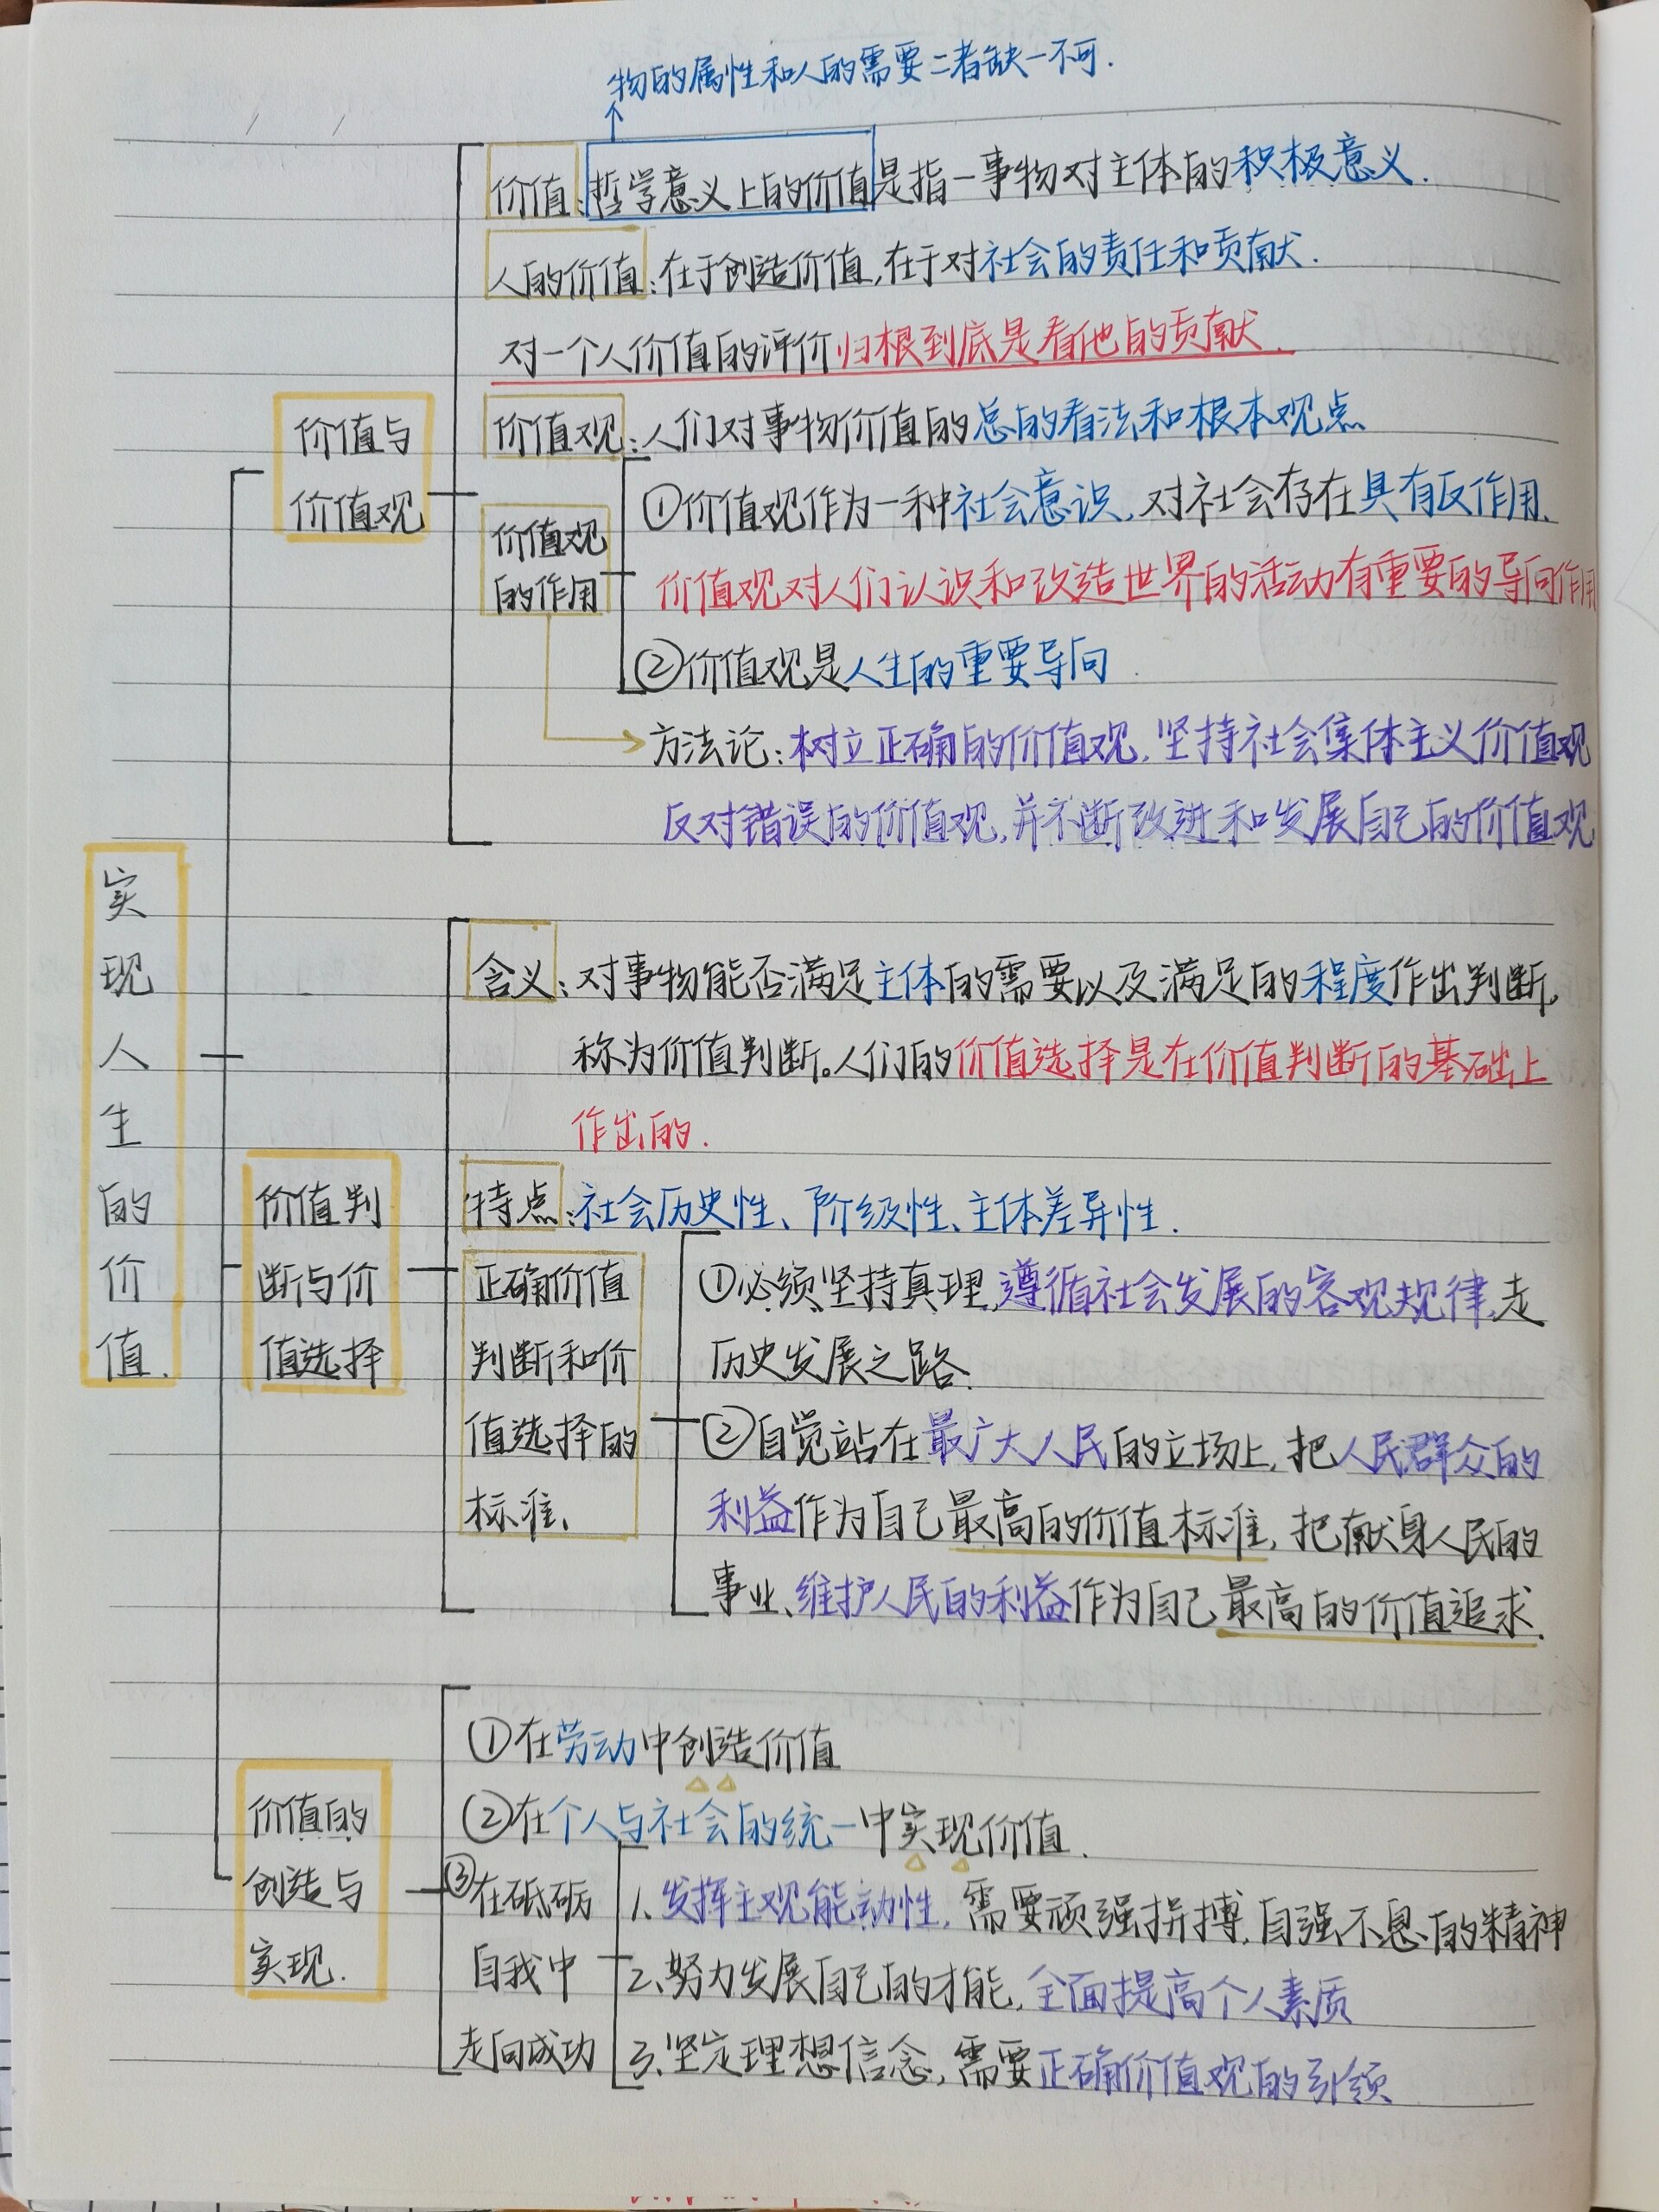 物的属性和人的需要二者缺一不可.
价值:哲学意义上的价值是指一事物对主体的积极意义.
人的价值:在于创造价值,在于对社会的责任和贡献.
对一个人价值的评价归根到底是看他的贡献.
价值与
价值观
价值观:人们对事物价值的总的看法和根本观点
价值观
的作用
①价值观作为一种社会意识,对社会存在具有反作用.
价值观对人们认识和改造世界的活动有重要的导向作用
②价值观是人生的重要导向.
方法论:树立正确的价值观,坚持社会集体主义价值观
反对错误的价值观,并不断改进和发展自己的价值观
实现人生的价值.
含义:对事物能否满足主体的需要以及满足的程度作出判断,
称为价值判断。人们的价值选择是在价值判断的基础上
作出的.
价值判
断与价
值选择
特点:社会历史性、阶级性、主体差异性.
正确价值
判断和价
值选择的
标准、
①必须坚持真理,遵循社会发展的客观规律,走
历史发展之路.
②自觉站在最广大人民的立场上,把人民群众的
利益作为自己最高的价值标准,把献身人民的
事业、维护人民的利益作为自己最高的价值追求.
价值的
创造与
实现.
①在劳动中创造价值
②在个人与社会的统一中实现价值.
③在砥砺
自我中
走向成功
1、发挥主观能动性,需要顽强拼搏,自强不息的精神
2、努力发展自己的才能,全面提高个人素质
3、坚定理想信念,需要正确价值观的引领